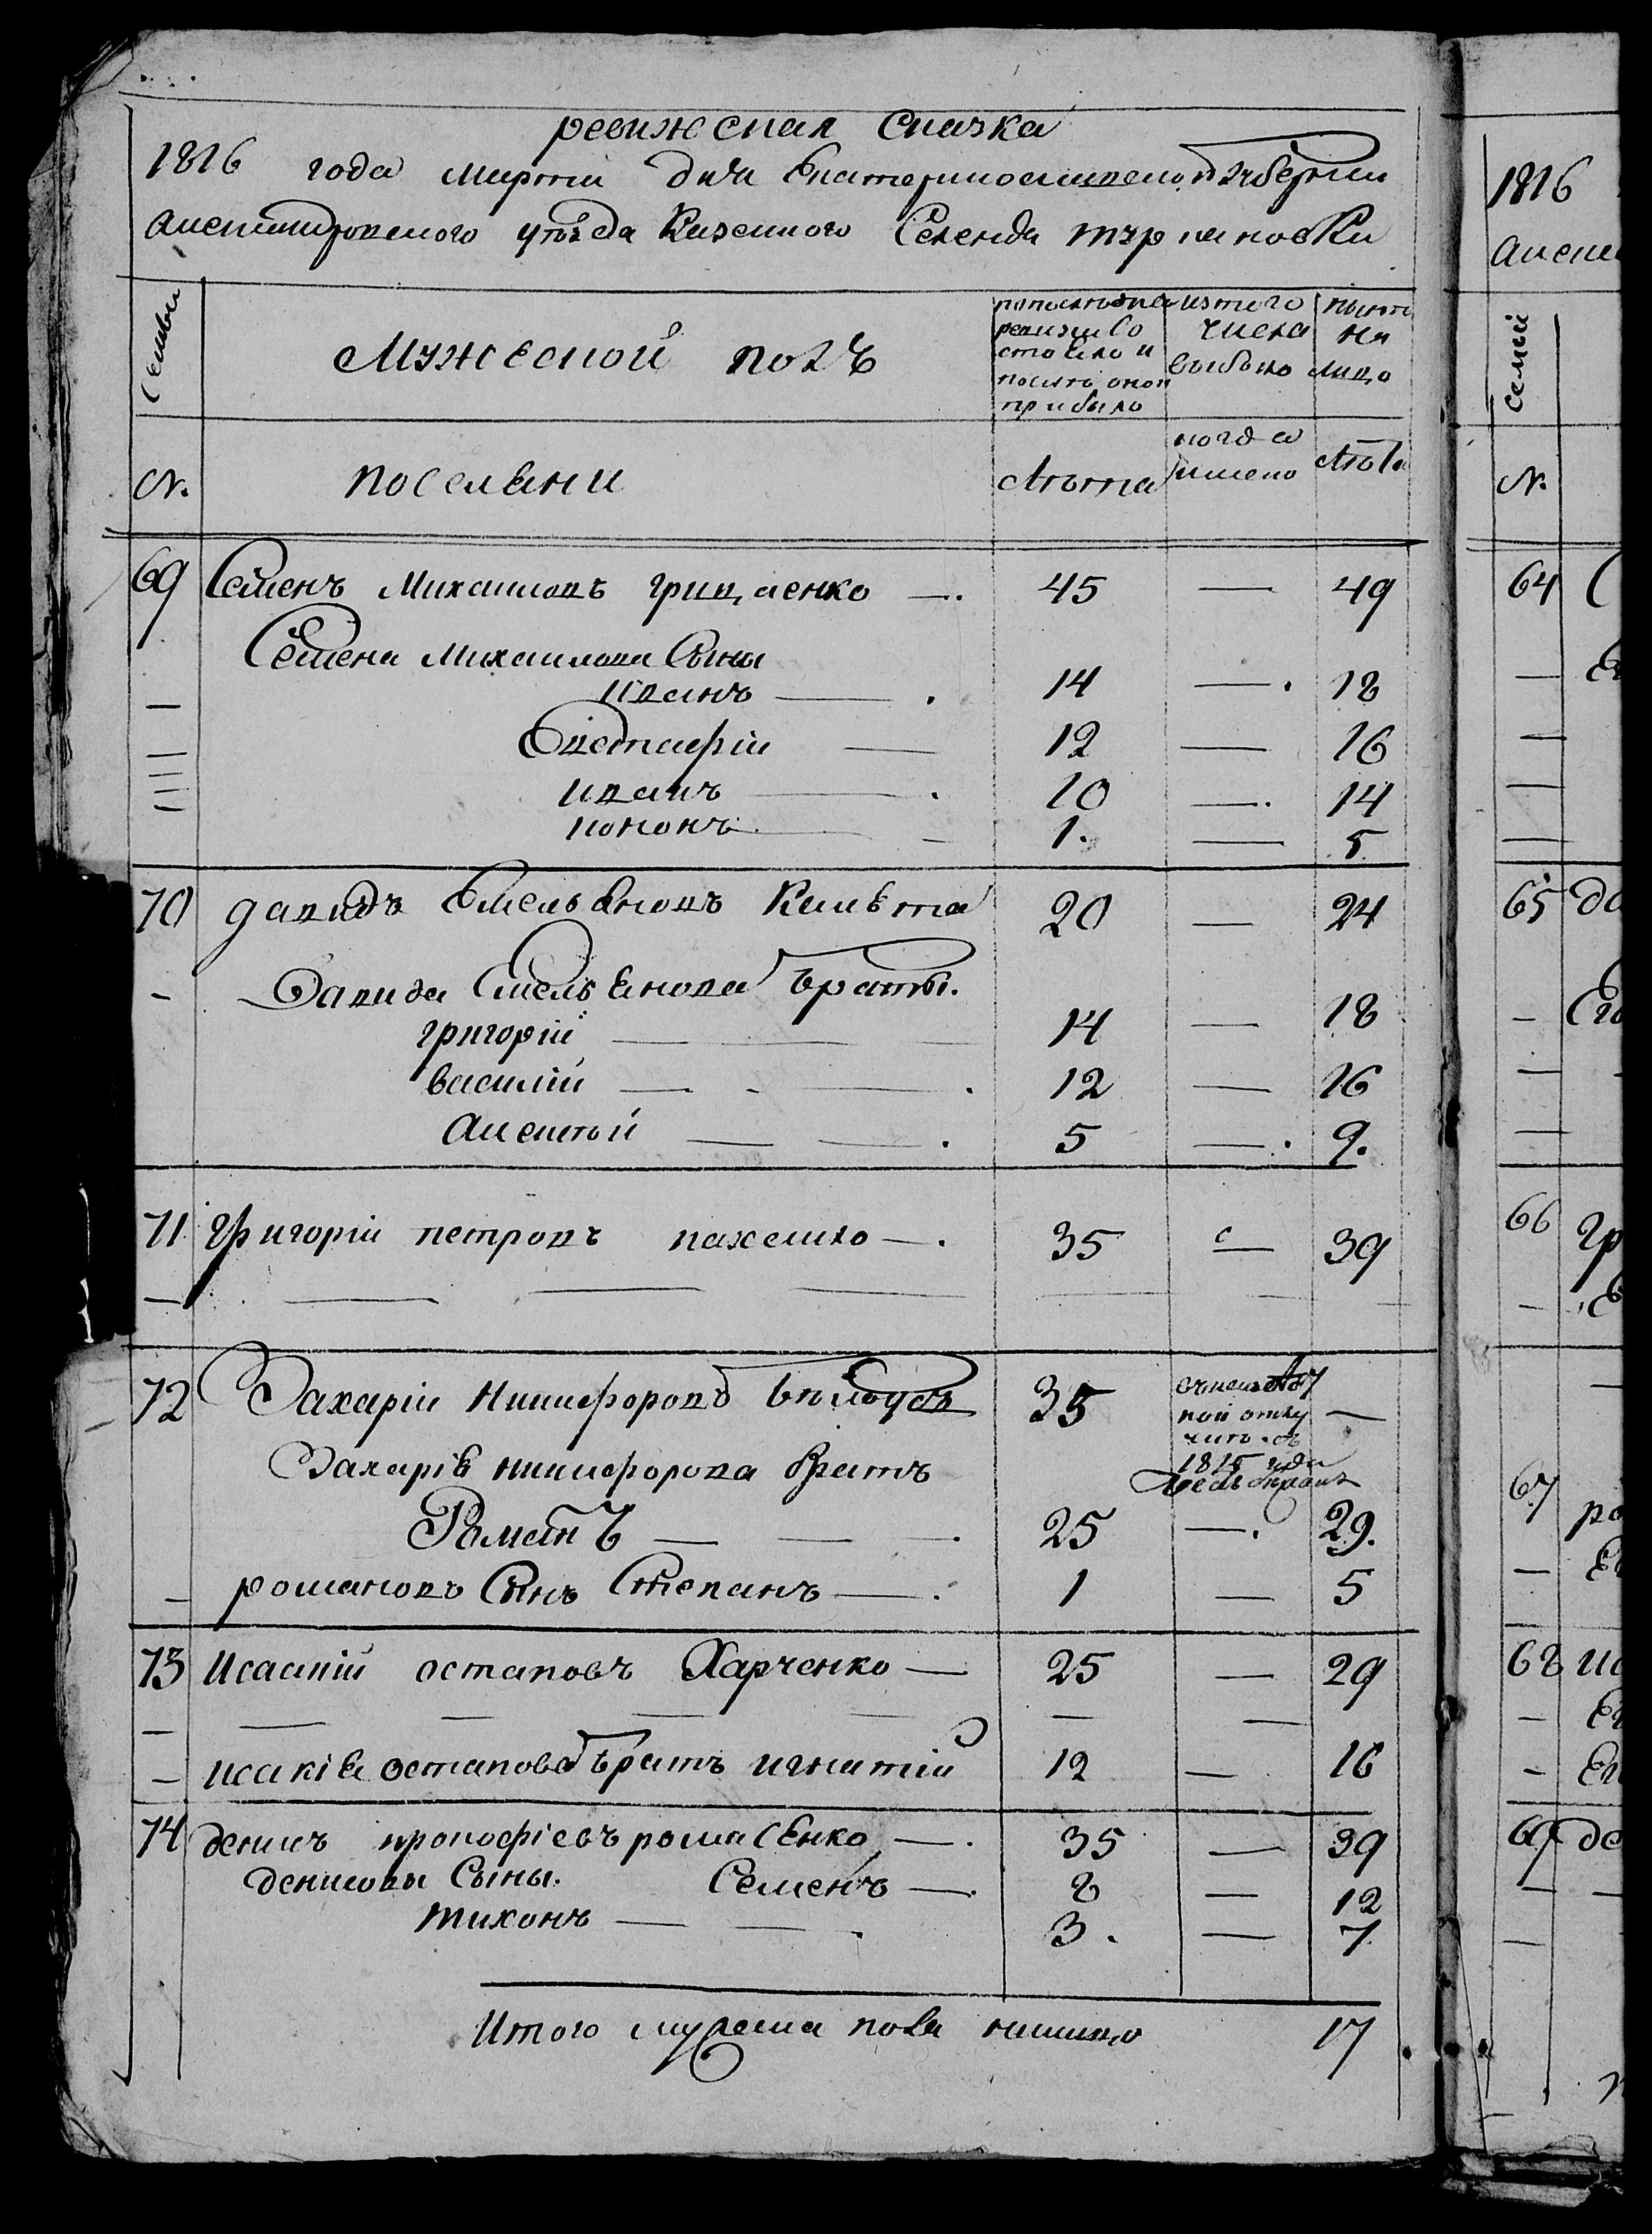 ревижская сказка
1816 года марта дня Екатеринославской губернии
Александровского уѣзда Казенного Селенія терноноβки
Семьи
Мужеской полъ
по последней ревизии Состояло и после оной прибыло
из того числа выбыло
ныне на лицо
№.
поселяни
Лѣта
когда имено
Лѣта
69 Семенъ Михаиловъ грицаенко —. 45 — 49
Семена Михаилова Сыны
иванъ — . 14 —. 18
Евстафіи — 12 — 16
иванъ — . 10 —. 14
кононъ — 1. — 5
70 давидъ Емельяновъ 20 — 24
Давида Емельянова браты.
григоріи — 14 — 18
василіи — . 12 — 16
Алексѣй — . 5 —. 9.
71 григоріи петровъ —. 35 — 39
72 Захаріи Никифоровъ белоусъ 35 1815 года —
Захарія никифорова братъ
Романъ — . 25 —. 29.
романовъ Сынъ Степанъ —. 1 — 5
73 Исаакій остаповъ Харченко — 25 — 29
— исакія остапова братъ игнатій 12 — 16
74 денисъ прокофіевъ —. 35 — 39
денисовы Сыны. Семенъ —. 8 — 12
тихонъ — . 3. — 7
Итого мужеска пола налицо 17
1816
Семьи
№.
64
65
66
67
68
69